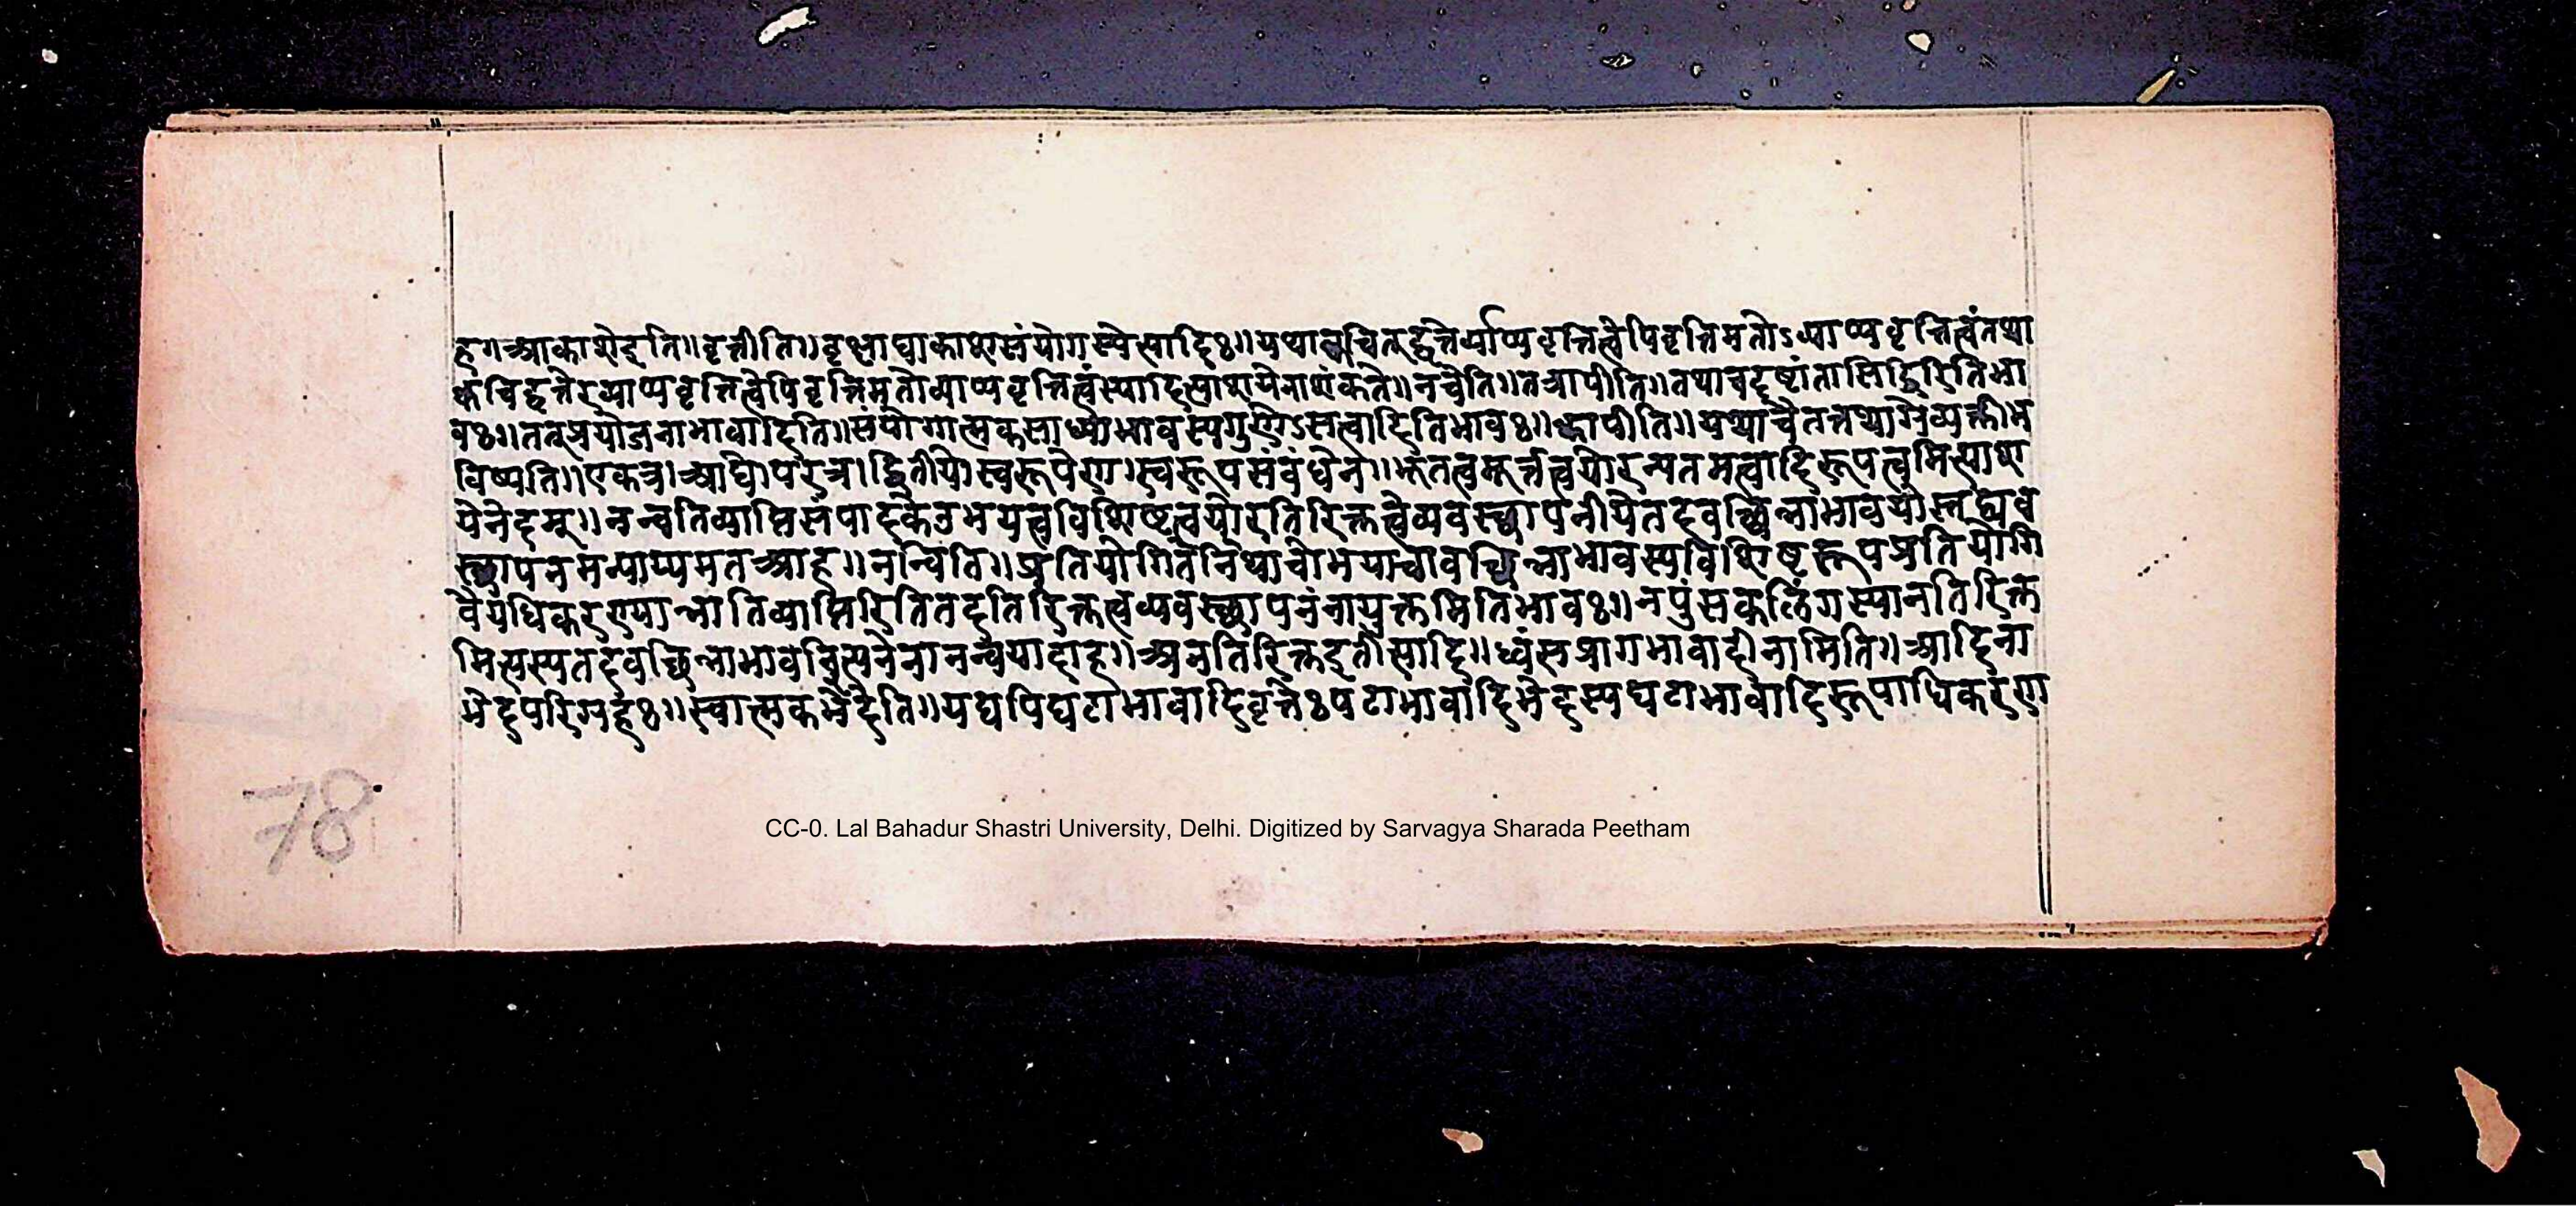 हगआकाशेइति॥वृत्तीति॥वृक्षाद्याकाशसंयोगस्येत्यादिः॥यथाक्वचित्तद्वृत्तेर्व्याप्यवृत्तित्वेपिवृत्तिमतोऽव्याप्यवृत्तित्वंतथा
क्वचिद्वृत्तेरव्याप्यवृत्तित्वेपिवृत्तिमतोव्याप्यवृत्तित्वंस्यादित्याशयेनाशंकते॥नचेति॥तत्रापीति॥तथाचदृष्टांतासिद्धिरितिभा
वः॥तत्प्रयोजनाभावादिति॥संयोगात्मकसाध्याभावस्यगुणेऽसत्वादितिभावः॥क्वापीति॥यथाचैतत्तथाग्रेव्यक्तीभ
विष्यति॥एकत्र।आद्ये।परत्र।द्वितीये।स्वरूपेण।स्वरूपसंबंधेन॥भूतत्वमूर्त्तत्वयोरन्यतमत्वादिरूपत्वमित्याश
येनेदम्॥नन्वतिव्याप्तिसंपादकेउभयत्वविशिष्टत्वयोरतिरिक्तत्वेव्यवस्थापनीयेतदवच्छिन्नाभावयोस्तद्व्यव
स्थापनमन्याय्यमतआह॥नन्विति॥प्रतियोगितेतितथाचोभयत्वावच्छिन्नाभावस्यविशिष्टरूपप्रतियोगि
वैयधिकरण्यान्नातिव्याप्तिरितितदतिरिक्तत्वव्यवस्थापनंनायुक्तमितिभावः॥नपुंसकलिंगस्यानतिरिक्त
मित्यस्यतदवच्छिन्नाभावइत्यनेनानन्वयादाह॥अनतिरिक्तइतीत्यादि॥ध्वंसप्रागभावादीनामिति॥आदिना
भेदपरिग्रहः॥स्वात्मकभेदेति॥यद्यपिघटाभावादिवृत्तेःपटाभावादिभेदस्यघटाभावादिरूपाधिकरण
78
CC-0. Lal Bahadur Shastri University, Delhi. Digitized by Sarvagya Sharada Peetham